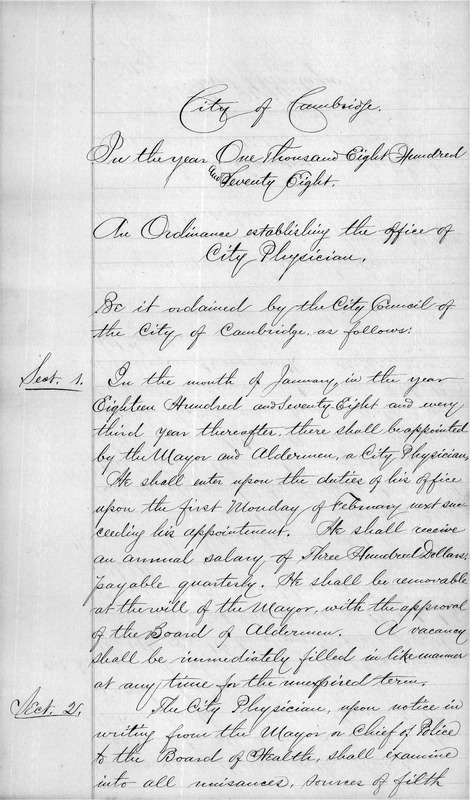 City of Cambridge.
In the year One Thousand Eight Hundred
and Seventy Eight.
An Ordinance establishing the office of
City Physician.
Be it ordained by the City Council of
the City of Cambridge, as follows:
Sect. 1. In the month of January, in the year
Eighteen Hundred and Seventy Eight and every
third year thereafter, there shall be appointed
by the Mayor and Aldermen, a City Physician,
He shall enter upon the duties of his office
upon the first Monday of February next suc-
ceeding his appointment. He shall receive
an annual salary of Three Hundred Dollars;
payable quarterly. He shall be removable
at the will of the Mayor, with the approval
of the Board of Aldermen. A vacancy
shall be immediately filled in like manner
at any time for the unexpired term.
Sect. 2. The City Physician, upon notice in
writing from the Mayor or Chief of Police
to the Board of Health, shall examine
into all nuisances, sources of filth